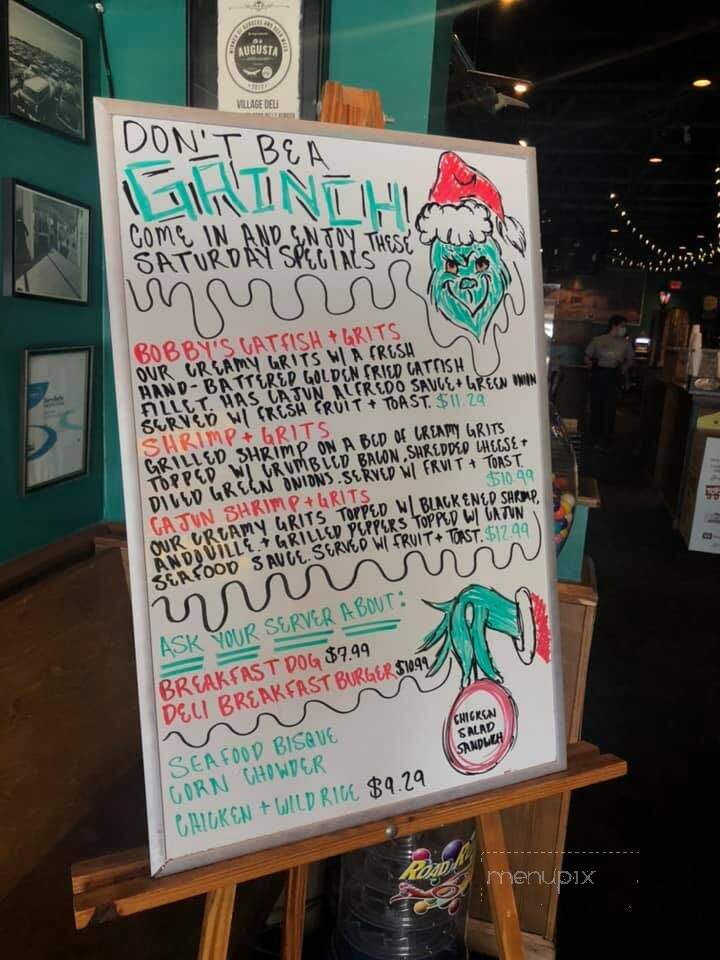 AUGUSTA
VILLAGE DELI
DON'T BE A
GRINCH!
COME IN AND ENJOY THESE
SATURDAY SPECIALS
BOBBY'S CATFISH + GRITS
OUR CREAMY GRITS W/ A FRESH
HAND-BATTERED GOLDEN FRIED CATFISH
FILLET. HAS CAJUN ALFREDO SAUCE + GREEN ONION
SERVED W/ FRESH FRUIT + TOAST. $11.29
SHRIMP + GRITS
GRILLED SHRIMP ON A BED OF CREAMY GRITS
TOPPED W/ CRUMBLED BACON, SHREDDED CHEESE +
DICED GREEN ONIONS. SERVED W/ FRUIT + TOAST.
$10.99
CAJUN SHRIMP + GRITS
OUR CREAMY GRITS TOPPED W/ BLACKENED SHRIMP,
ANDOUILLE, + GRILLED PEPPERS TOPPED W/ CAJUN
SEAFOOD SAUCE. SERVED W/ FRUIT + TOAST. $12.99
ASK YOUR SERVER ABOUT:
BREAKFAST DOG $7.99
DELI BREAKFAST BURGER $10.99
CHICKEN
SALAD
SANDWICH
SEAFOOD BISQUE
CORN CHOWDER
CHICKEN + WILD RICE $9.29
menupix